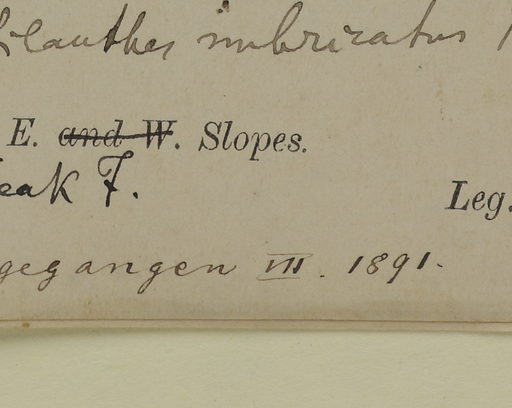 imbricatus
E. and W. Slopes.
eak F.
Leg.
gegangen VIII. 1891.